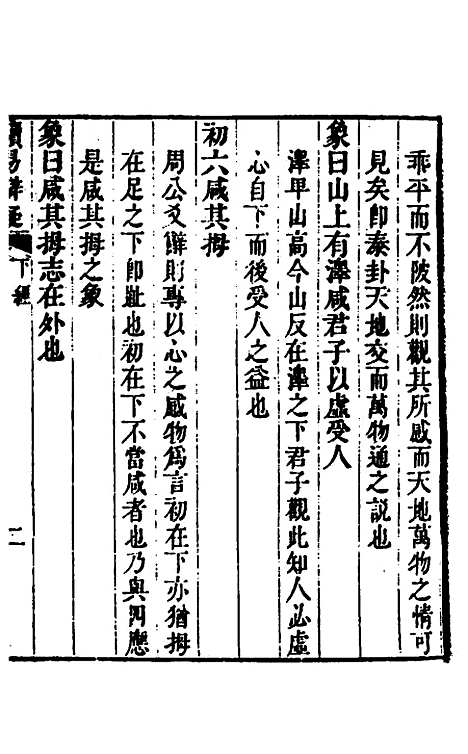 乖平而不陂然則觀其所感而天地萬物之情可
見矣卽泰卦天地交而萬物通之說也
象曰山上有澤咸君子以虛受人
澤卑山高今山反在澤之下君子觀此知人必虛
心自下而後受人之益也
初六咸其拇
周公爻辭則專以心之感物爲言初在下亦猶拇
在足之下卽趾也初在下不當咸者也乃與四應
是咸其拇之象
象曰咸其拇志在外也
讀易 下經 二